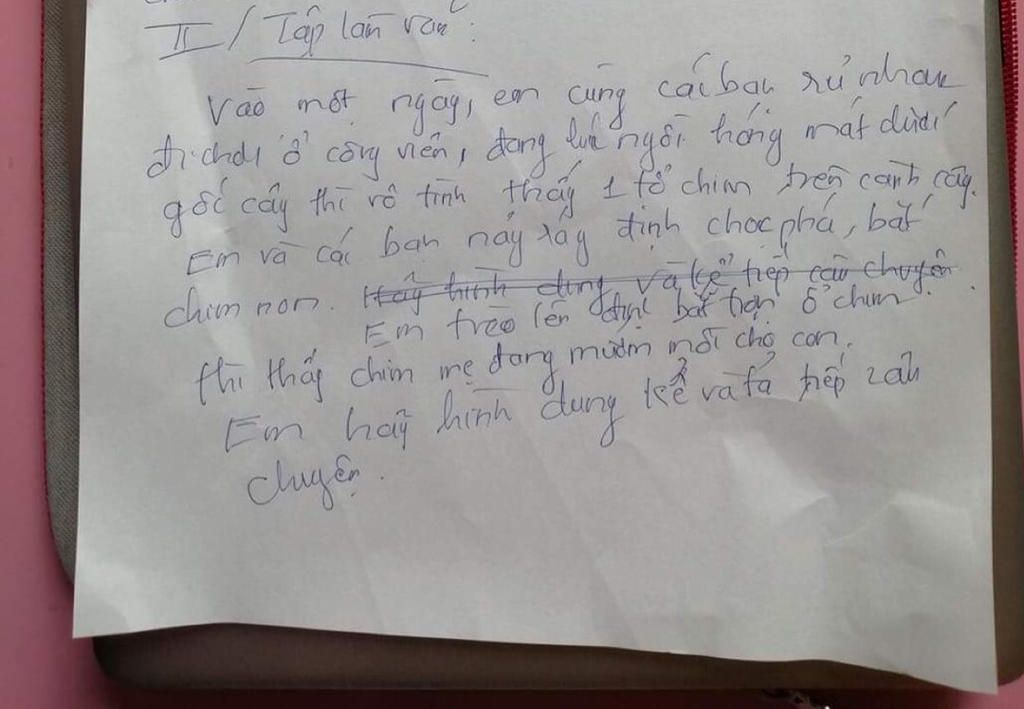 II / Tập làm văn :
Vào một ngày, em cùng các bạn rủ nhau
đi chơi ở công viên, đang lúc ngồi hóng mát dưới
gốc cây thì vô tình thấy 1 tổ chim trên cành cây.
Em và các bạn nảy xáy định chọc phá, bắt
chim non. Hãy hình dung và kể tiếp câu chuyện.
Em trèo lên định bắt trọn ổ chim
thì thấy chim mẹ đang mướm mồi cho con.
Em hãy hình dung kể và tả tiếp câu
chuyện.